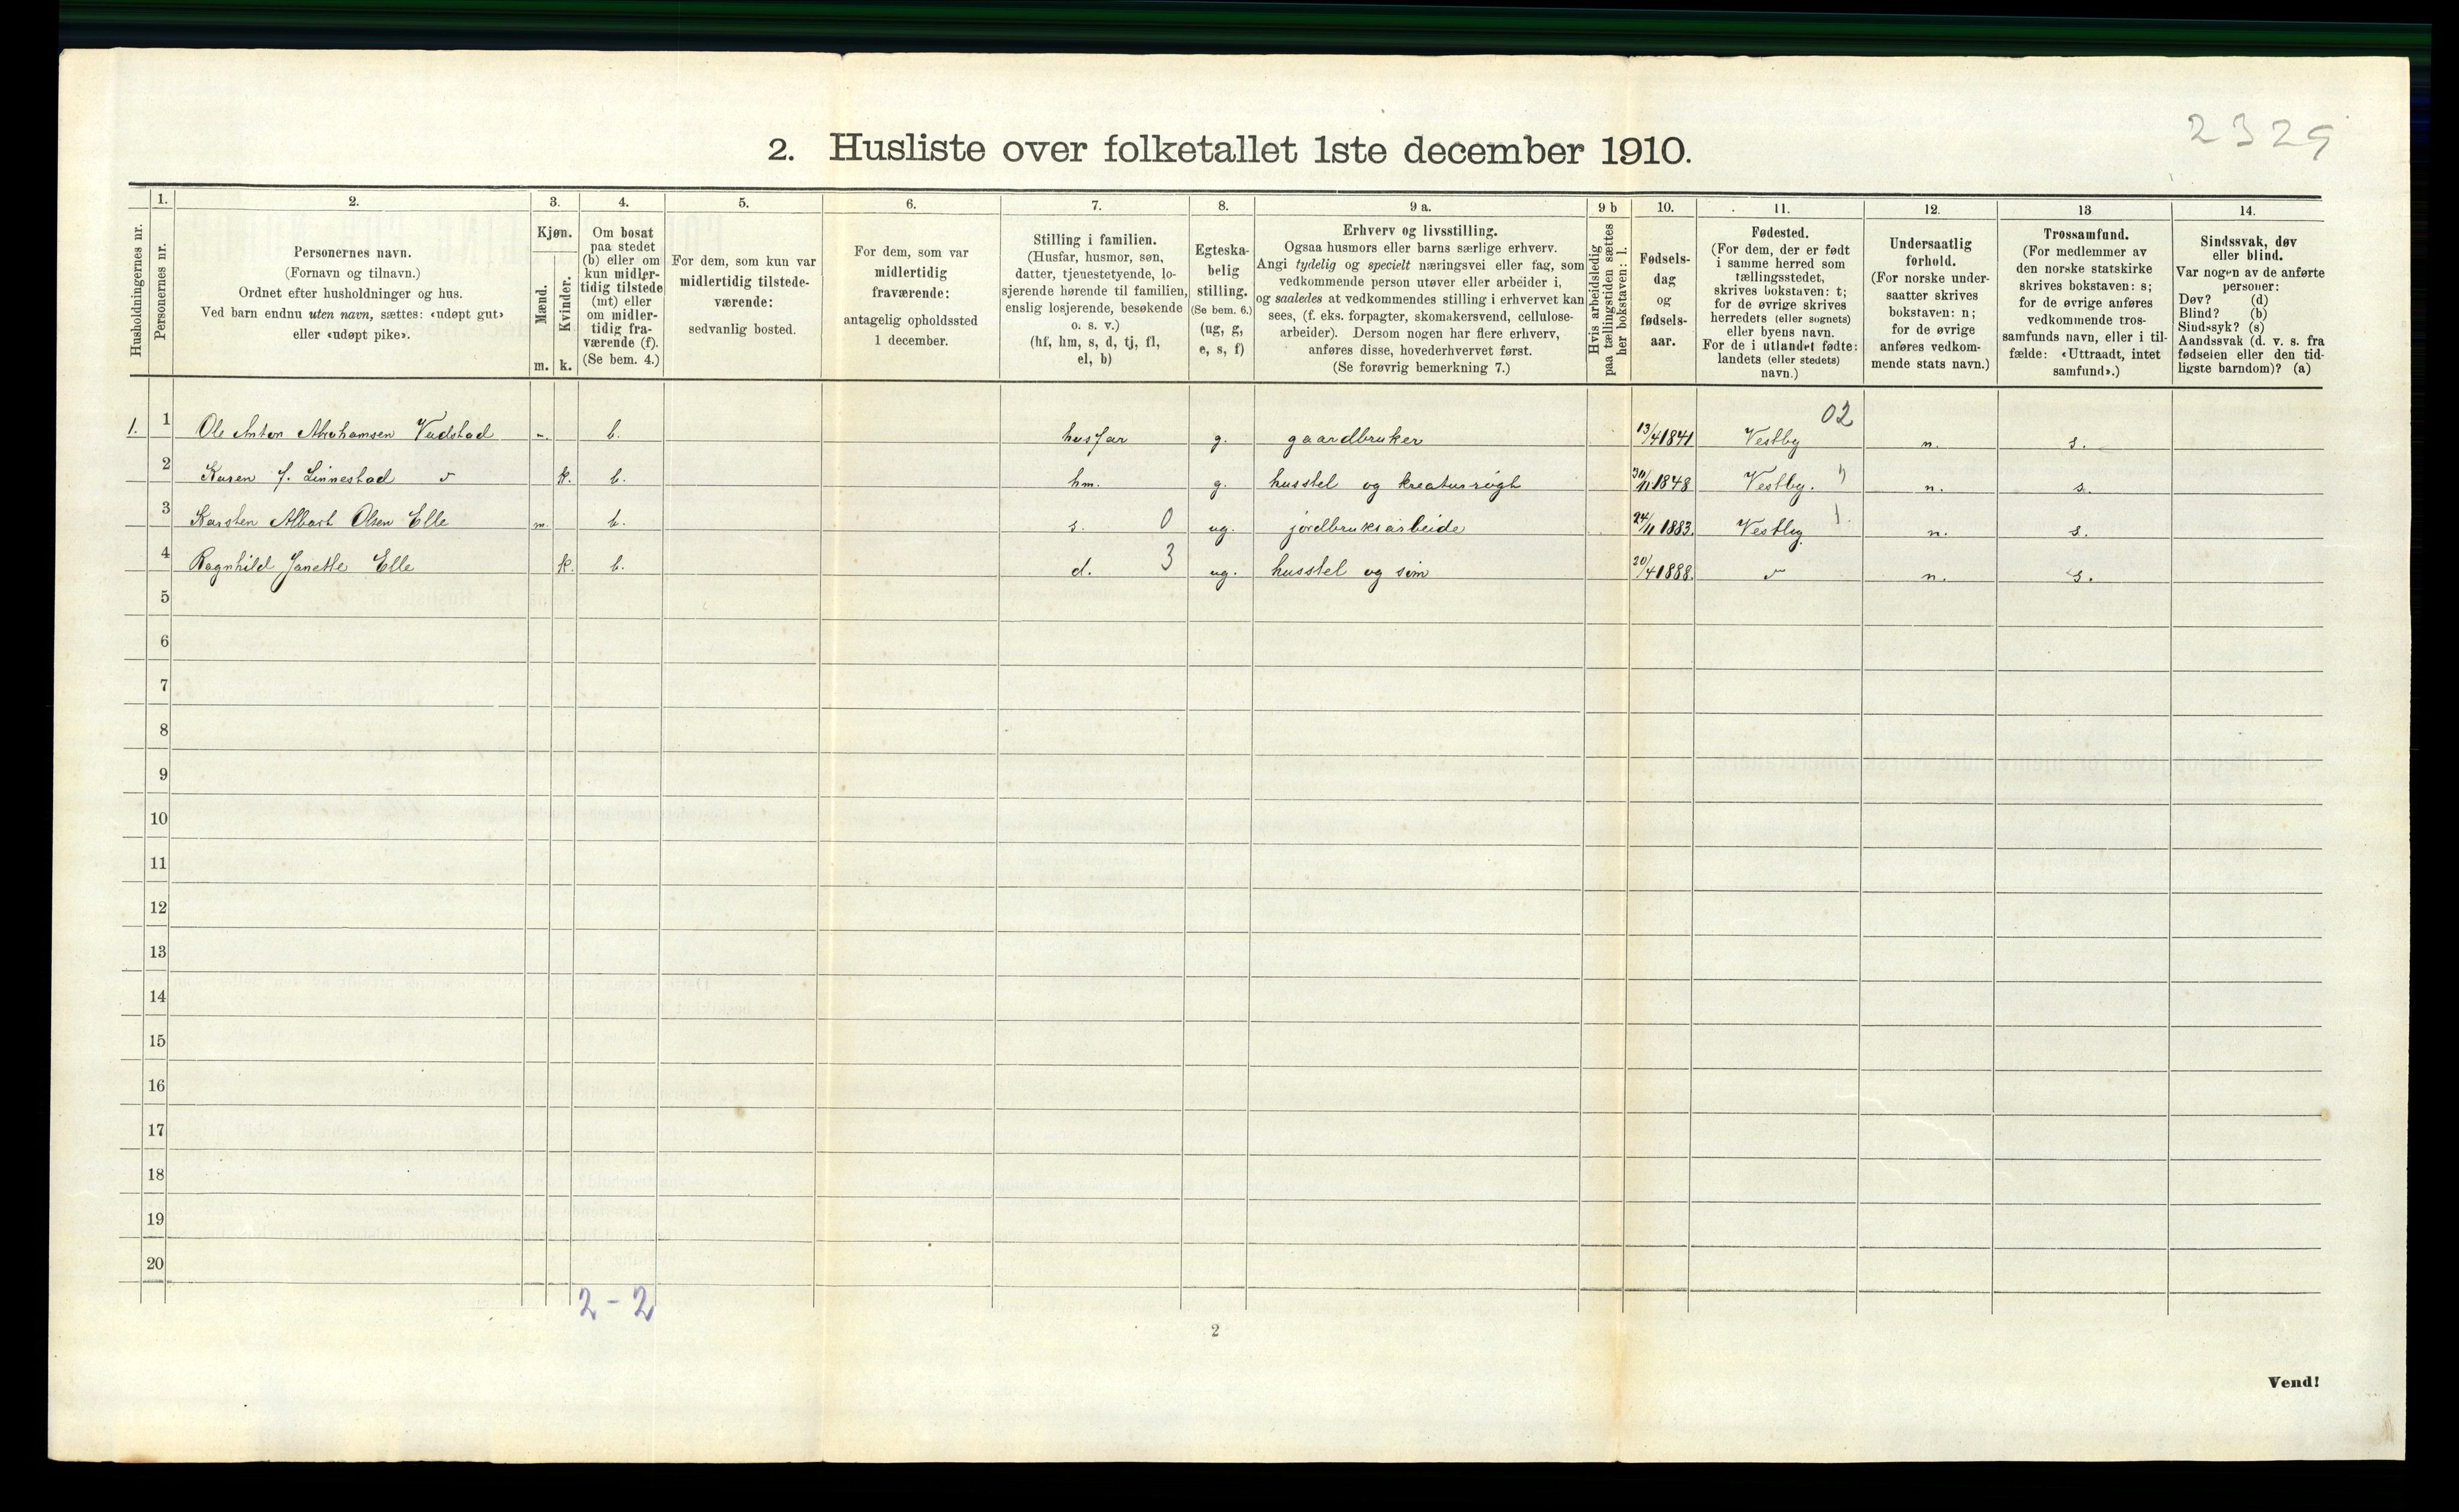 2329
2. Husliste over folketallet 1ste december 1910.
Husholdningernes nr.
1.
Personernes nr.
2.
Personernes navn.
(Fornavn og tilnavn.)
Ordnet efter husholdninger og hus.
Ved barn endnu uten navn, sættes: «udøpt gut»
eller «udøpt pike».
3.
Kjøn.
Mænd.
Kvinder.
m. k.
4.
Om bosat
paa stedet
(b) eller om
kun midler-
tidig tilstede
(mt) eller
om midler-
tidig fra-
værende (f).
(Se bem. 4.)
5.
For dem, som kun var
midlertidig tilstede-
værende:
sedvanlig bosted.
6.
For dem, som var
midlertidig
fraværende:
antagelig opholdssted
1 december.
7.
Stilling i familien.
(Husfar, husmor, søn,
datter, tjenestetyende, lo-
sjerende hørende til familien,
enslig losjerende, besøkende
o. s. v.)
(hf, hm, s, d, tj, fl,
el, b)
8.
Egteska-
belig
stilling.
(Se bem. 6.)
(ug, g,
e, s, f)
9 a.
Erhverv og livsstilling.
Ogsaa husmors eller barns særlige erhverv.
Angi tydelig og specielt næringsvei eller fag, som
vedkommende person utøver eller arbeider i,
og saaledes at vedkommendes stilling i erhvervet kan
sees, (f. eks. forpagter, skomakersvend, cellulose-
arbeider). Dersom nogen har flere erhverv,
anføres disse, hovederhvervet først.
(Se forøvrig bemerkning 7.)
9 b
Hvis arbeidsledig
paa tællingstiden sættes
her bokstaven: l.
10.
Fødsels-
dag
og
fødsels-
aar.
11.
Fødested.
(For dem, der er født
i samme herred som
tællingsstedet,
skrives bokstaven: t;
for de øvrige skrives
herredets (eller sognets)
eller byens navn.
For de i utlandet fødte:
landets (eller stedets)
navn.)
12.
Undersaatlig
forhold.
(For norske under-
saatter skrives
bokstaven: n;
for de øvrige
anføres vedkom-
mende stats navn.)
13
Trossamfund.
(For medlemmer av
den norske statskirke
skrives bokstaven: s;
for de øvrige anføres
vedkommende tros-
samfunds navn, eller i til-
fælde: «Uttraadt, intet
samfund».)
14.
Sindssvak, døv
eller blind.
Var nogen av de anførte
personer:
Døv? (d)
Blind? (b)
Sindssyk? (s)
Aandssvak (d. v. s. fra
fødselen eller den tid-
ligste barndom)? (a)
02
1. 1 Ole Anton Abrahamsen m. b. husfar g. gaardbruker 13/4 1841 Vestby n. s.
2 Karen J. Linnestad k. b. hm. g. husstel og kreaturrøgt 30/11 1848 Vestby. n. s.
3 Karsten Albart Olsen Elle m. b. s. 0 ug. jordbruksarbeide 24/11 1883. Vestby n. s.
4 Ragnhild Janette Elle k. b. d. 3 ug. husstel og søm 20/4 1888. n. s.
5
6
7
8
9
10
11
12
13
14
15
16
17
18
19
20
2-2
2
Vend!